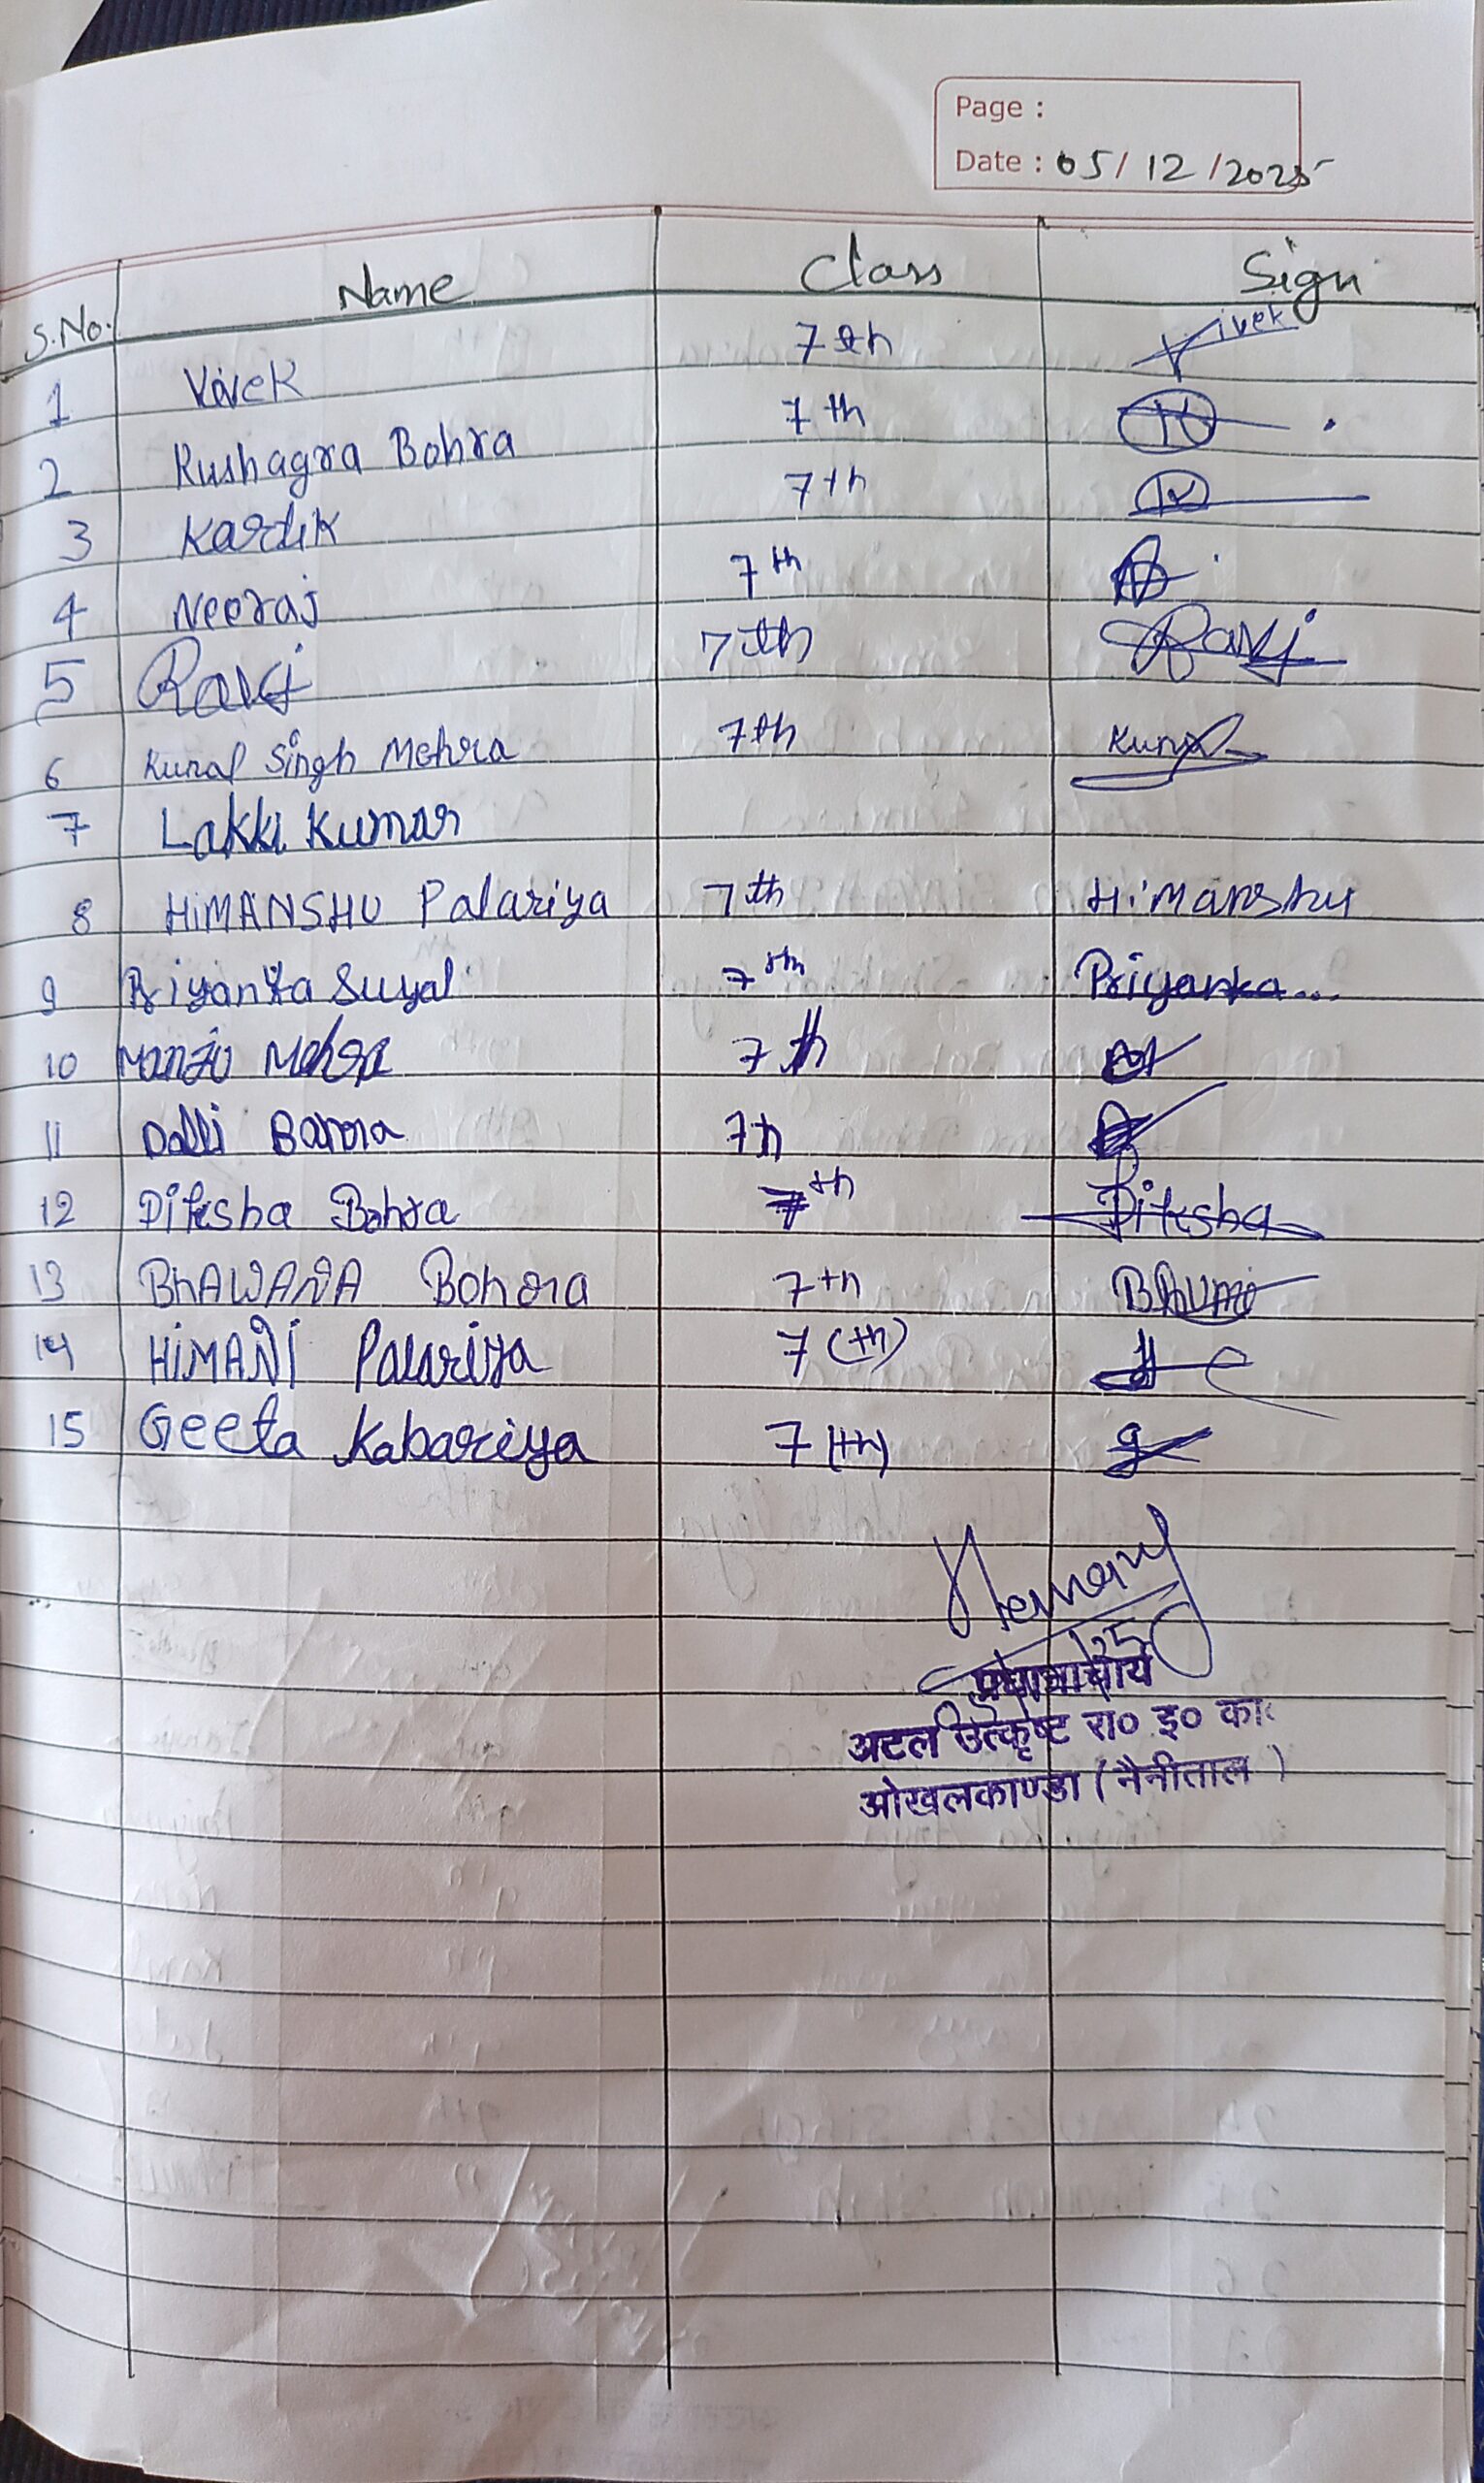 Page :
Date : 05/12/2025
S.No. Name Class Sign
1 Vivek 7th Vivek
2 Kushagra Bohra 7th
3 Kartik 7th
4 Neeraj 7th
5 Ravi 7th Ravi
6 Kunal Singh Mehra 7th Kunal
7 Lakki Kumar
8 HiMANSHU Palariya 7th Himanshu
9 Priyanka Suyal 7th Priyanka...
10 Mehra 7th
11 Dolli 7th
12 Diksha Bohra 7th Diksha
13 BhAWANA Bohora 7th Bhumi
14 HiMANi Palariya 7(th)
15 Geeta Kabariya 7(th)
प्रधानाचार्य
अटल उत्कृष्ट रा० इ० का०
ओखलकाण्डा (नैनीताल)